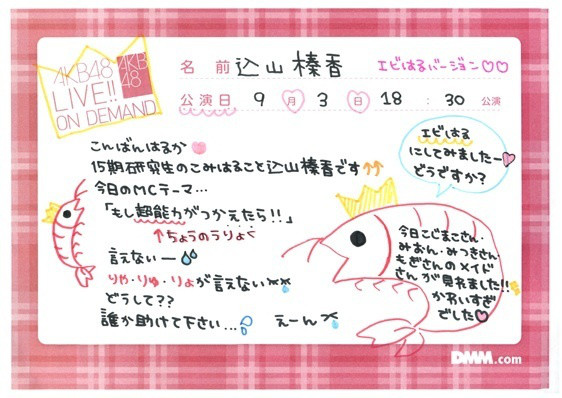 AKB48
LIVE!!
ON DEMAND
AKB
48
名前 込山榛香 エビはるバージョン♡♡
公演日 9月3日 18:30公演
こんばんはるか♥
15期研究生のこみはること込山榛香です↑↑
今日のMCテーマ…
「もし超能力がつかえたら!!」
↑ちょうのうりょく
言えないー
りゃ・りゅ・りょが言えない××
どうして??
誰か助けて下さい… えーん
エビはる
にしてみましたー♥
どうですか?
今日こじまこさん・
みおん・みつきさん・
もぎさんのメイド
さんが見れました!!
かわいすぎ
でした♥
DMM.com